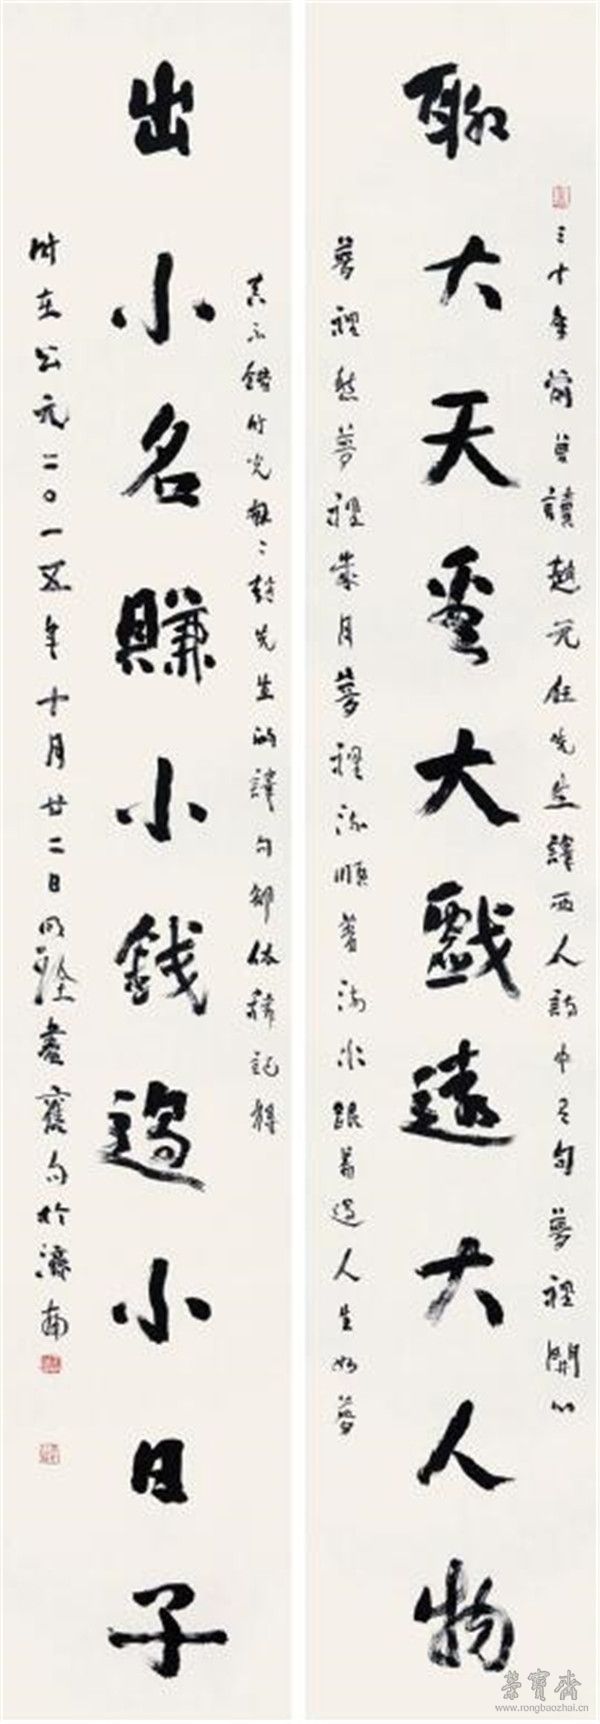 聊大天大戲遠大人物
三十年前曾讀趙元任先生譯西人詩中有句夢裡開心
夢裡愁夢裡歲月夢裡流順著流水跟著過人生如夢
出小名賺小錢過小日子
真不錯時光匆匆趙先生的譯句卻依稀記得
時在公元二〇一五年十月廿二日明詮書舊句於濟南
榮寶齋
www.rongbaozhai.cn